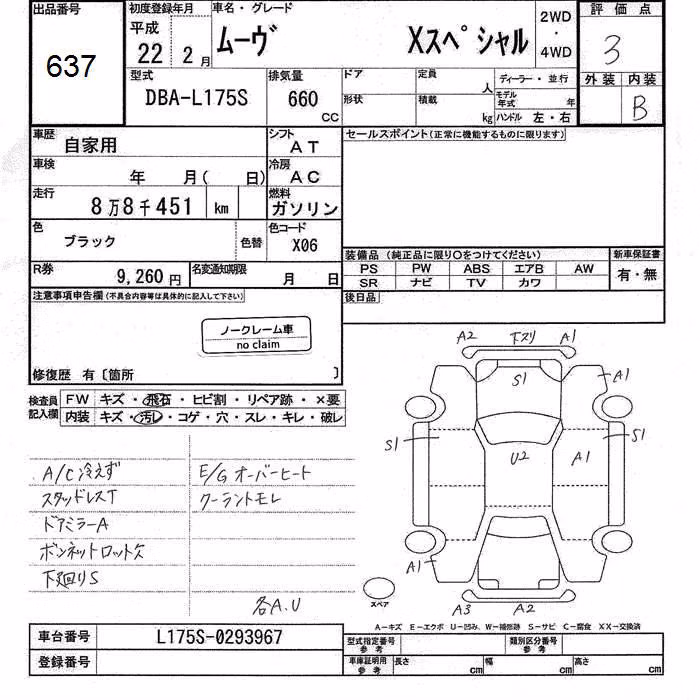 出品番号
637
初度登録年月
平成
22 2月
車名・グレード
ムーヴ Xスペシャル
2WD
・
4WD
評価点
3
外装 内装
B
型式
DBA-L175S
排気量
660
CC
ドア
定員
人
形状
積載
kg
ディーラー・並行
モデル年式 年
ハンドル 左・右
車歴
自家用
シフト
AT
車検
年 月( 日)
冷房
AC
走行
8万8千451 km
燃料
ガソリン
色
ブラック
色替
色コード
X06
R券
9,260円
名変通知期限
月 日
セールスポイント(正常に機能するものに限ります)
装備品(純正品に限り〇をつけてください)
PS PW ABS エアB AW
SR ナビ TV カワ
新車保証書
有・無
後日品
注意事項申告欄(不具合内容等は具体的に記入して下さい)
ノークレーム車
no claim
修復歴 有〔箇所 〕
検査員記入欄
FW キズ・飛石・ヒビ割・リペア跡・×要
内装 キズ・汚レ・コゲ・穴・スレ・キレ・破レ
A/C冷えず
スタッドレスT
ドアミラーA
ボンネットロット欠
下廻りS
E/Gオーバーヒート
クーラントモレ
各A.U
A2 下スリ A1
S1
A1
S1
S1
U2
A1
A1
A3 A2
スペア
A−キズ E−エクボ U−凹み、W−補修跡 S−サビ C−腐食 XX−交換済
車台番号
L175S-0293967
登録番号
型式指定番号
参考
類別区分番号
参考
車庫証明用
参考
長さ cm 幅 cm 高さ cm